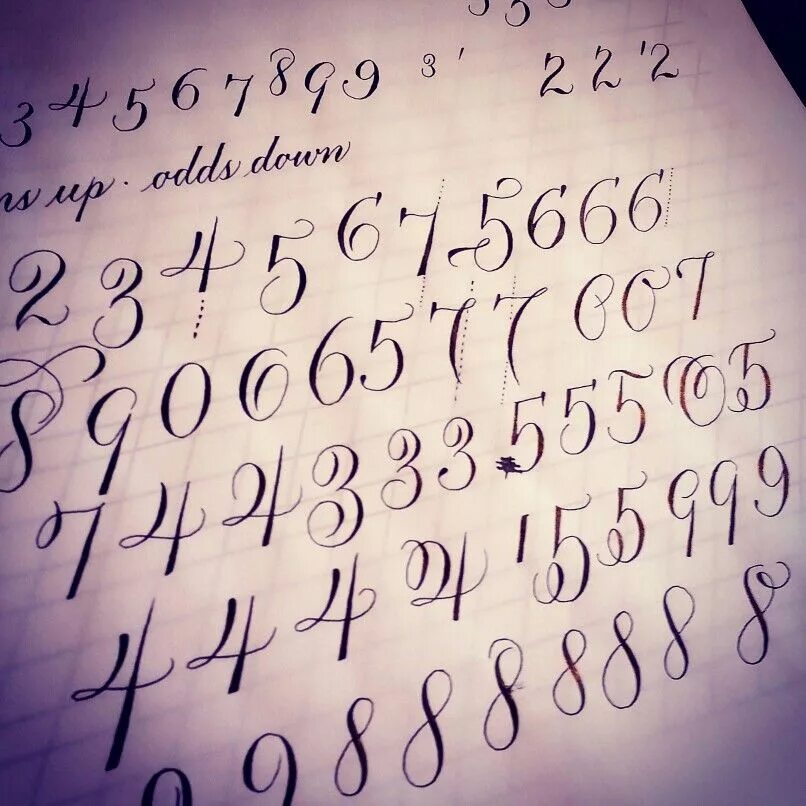 3 4 5 6 7 8 9 9 3 ' 2 2 '2
up · odds down
2 3 4 5 6 7 5 6 6 6
8 9 0 6 6 5 7 7 6 0 7
7 4 4 3 3 3 5 5 5 0 5
4 4 4 4 1 5 5 9 9 9
9 8 8 8 8 8 8 8